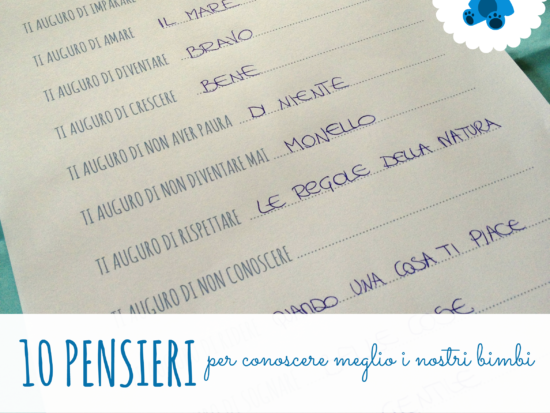 TI AUGURO DI IMPARARE
TI AUGURO DI AMARE IL MARE
TI AUGURO DI DIVENTARE BRAVO
TI AUGURO DI CRESCERE BENE
TI AUGURO DI NON AVER PAURA DI NIENTE
TI AUGURO DI NON DIVENTARE MAI MONELLO
TI AUGURO DI RISPETTARE LE REGOLE DELLA NATURA
TI AUGURO DI NON CONOSCERE
UNA COSA TI PIACE
10 PENSIERI per conoscere meglio i nostri bimbi